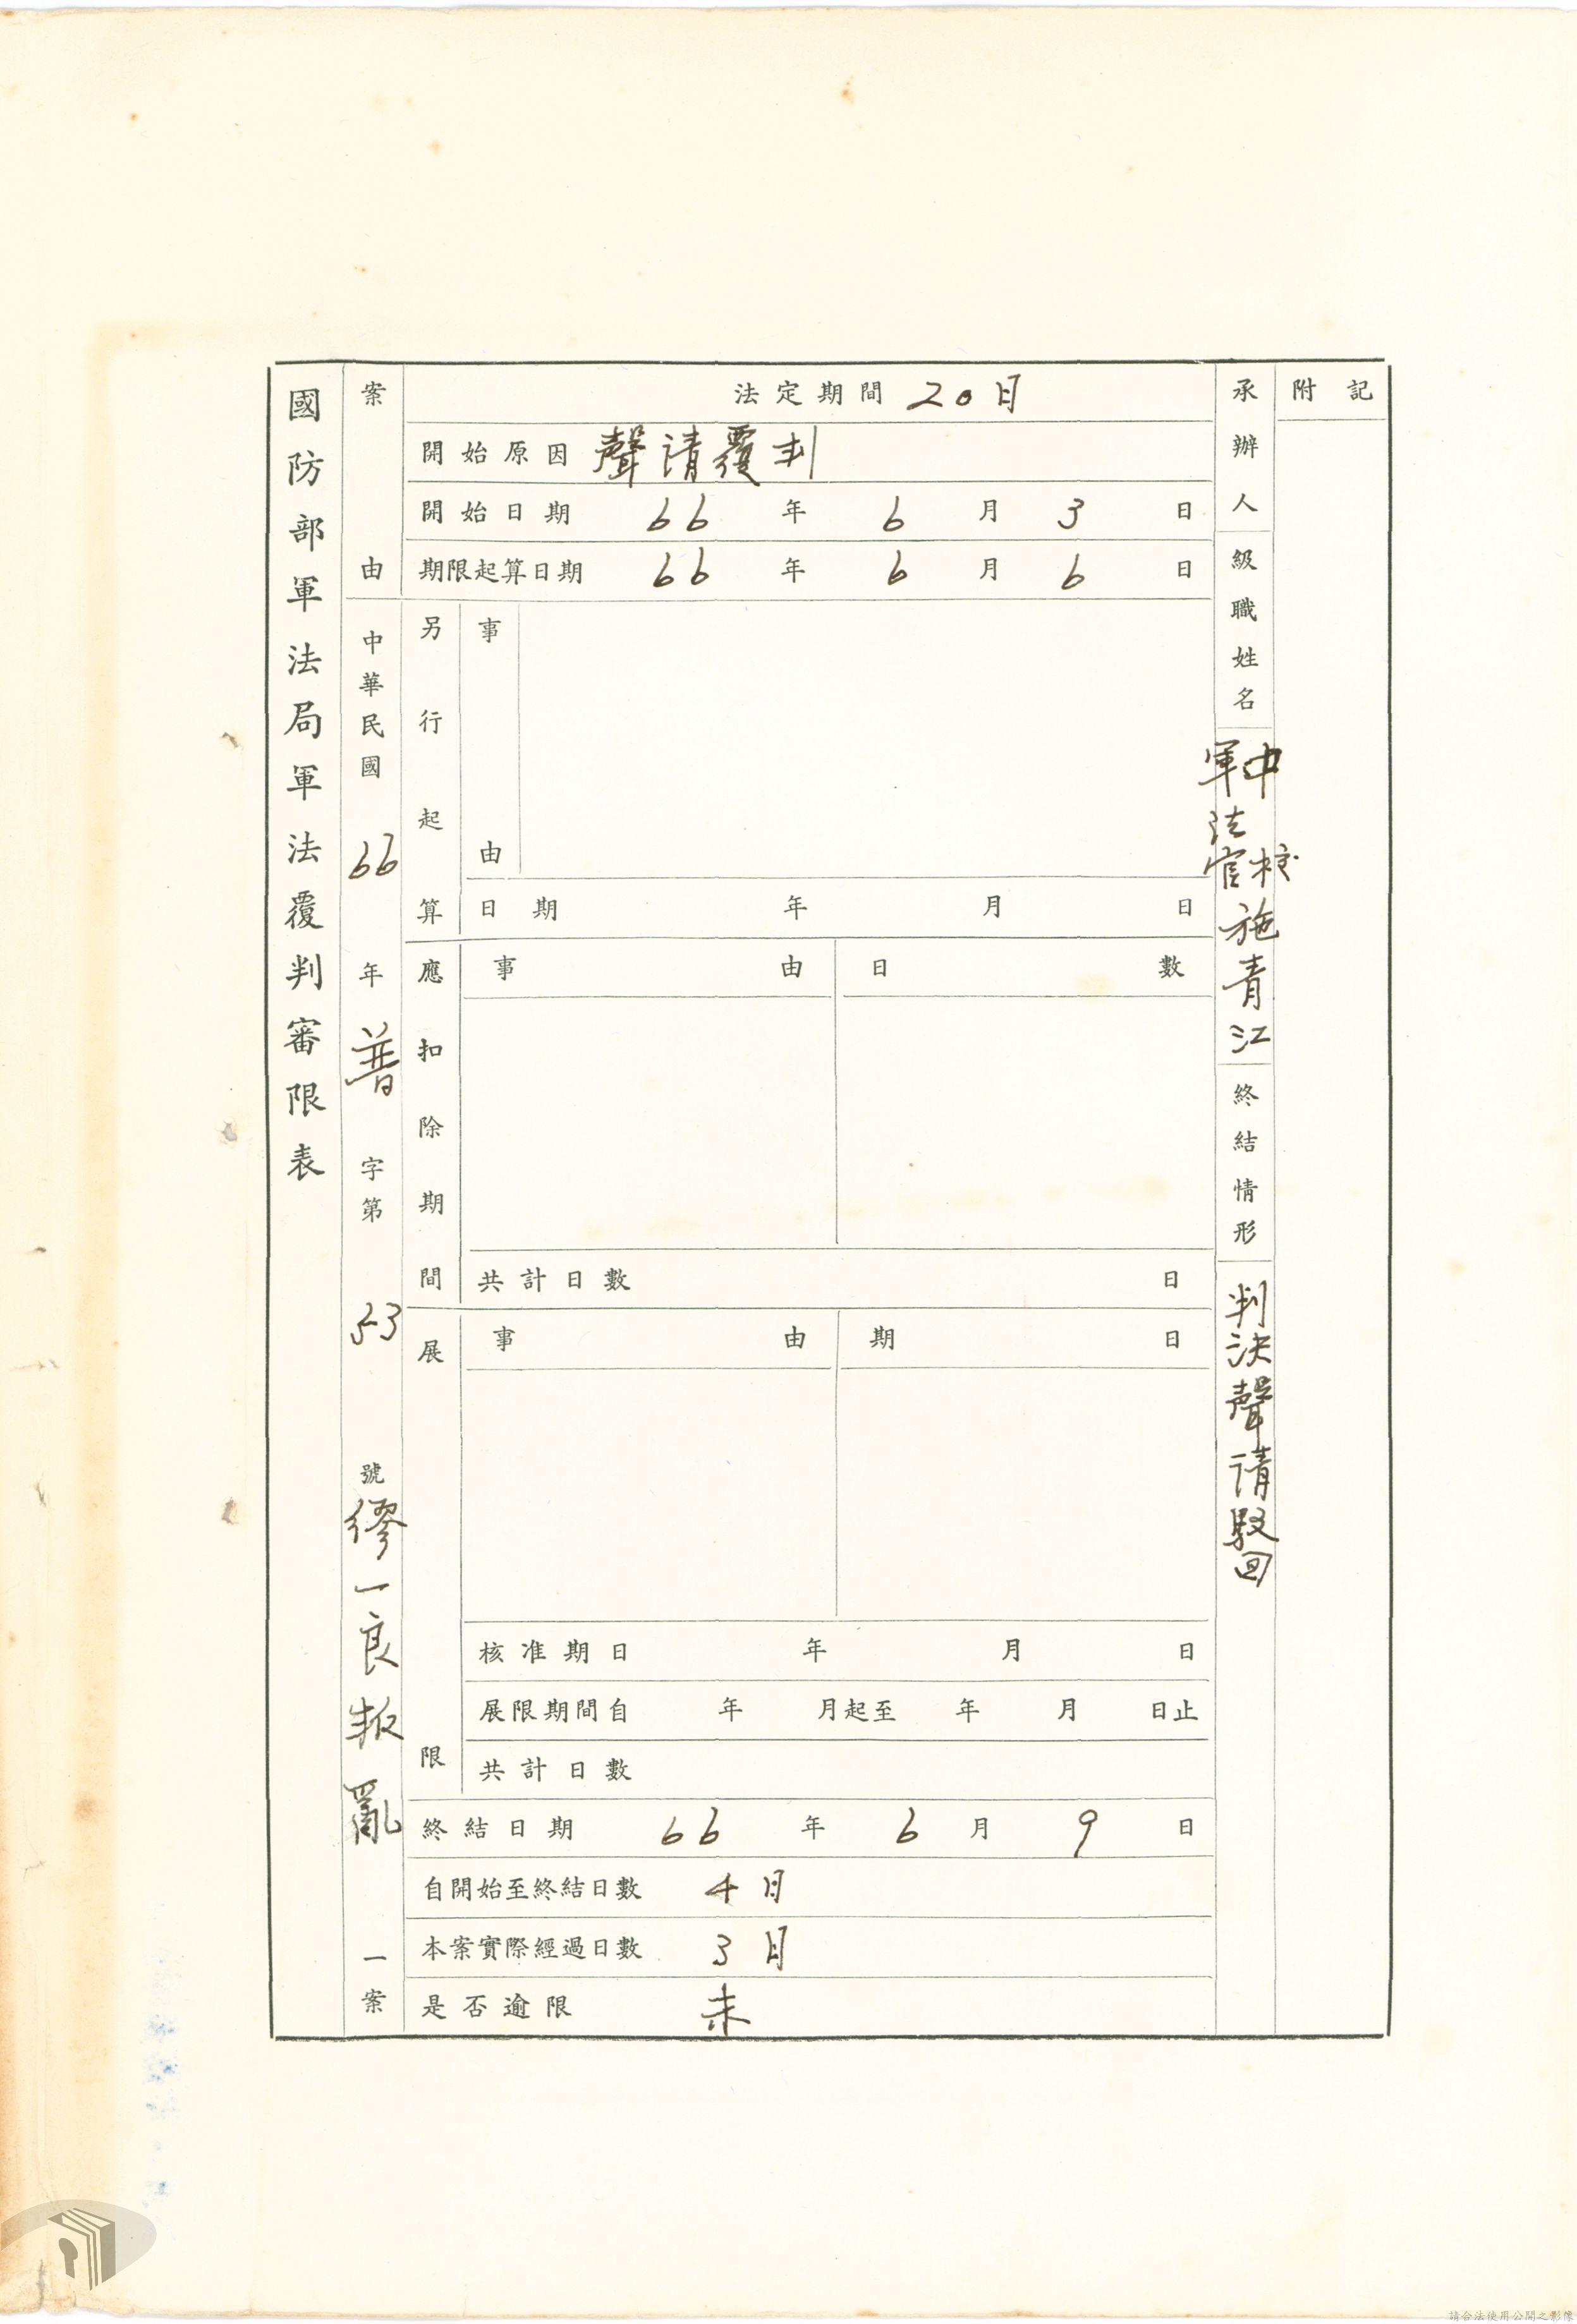 國防部軍法局軍法覆判審限表
案由
中華民國66年普字第53號繆一良叛亂一案
法定期間 20日
開始原因 聲請覆判
開始日期 66年6月3日
期限起算日期 66年6月6日
另行起算
事由
日期 年 月 日
應扣除期間
事由 日數
共計日數 日
展限
事由 期日
核准期日 年 月 日
展限期間自 年 月起至 年 月 日止
共計日數
終結日期 66年6月9日
自開始至終結日數 4日
本案實際經過日數 3日
是否逾限 未
承辦人級職姓名
中校
軍法官
施青江
終結情形
判決聲請駁回
附記
請合法使用公開之影像